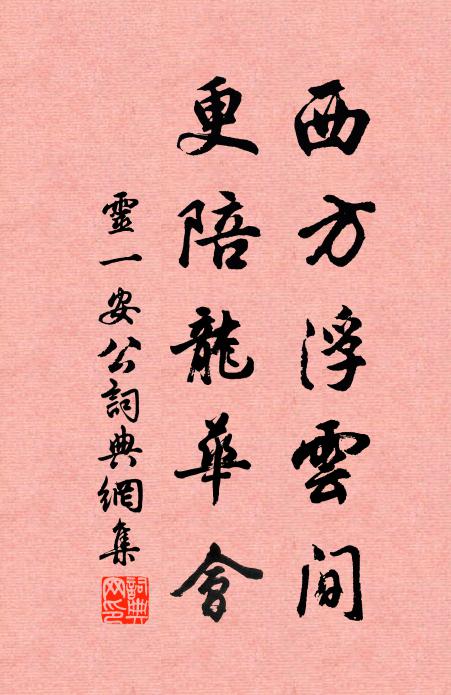 西方浮雲間
更陪龍華會
靈一安公詞典網集
詞典网印